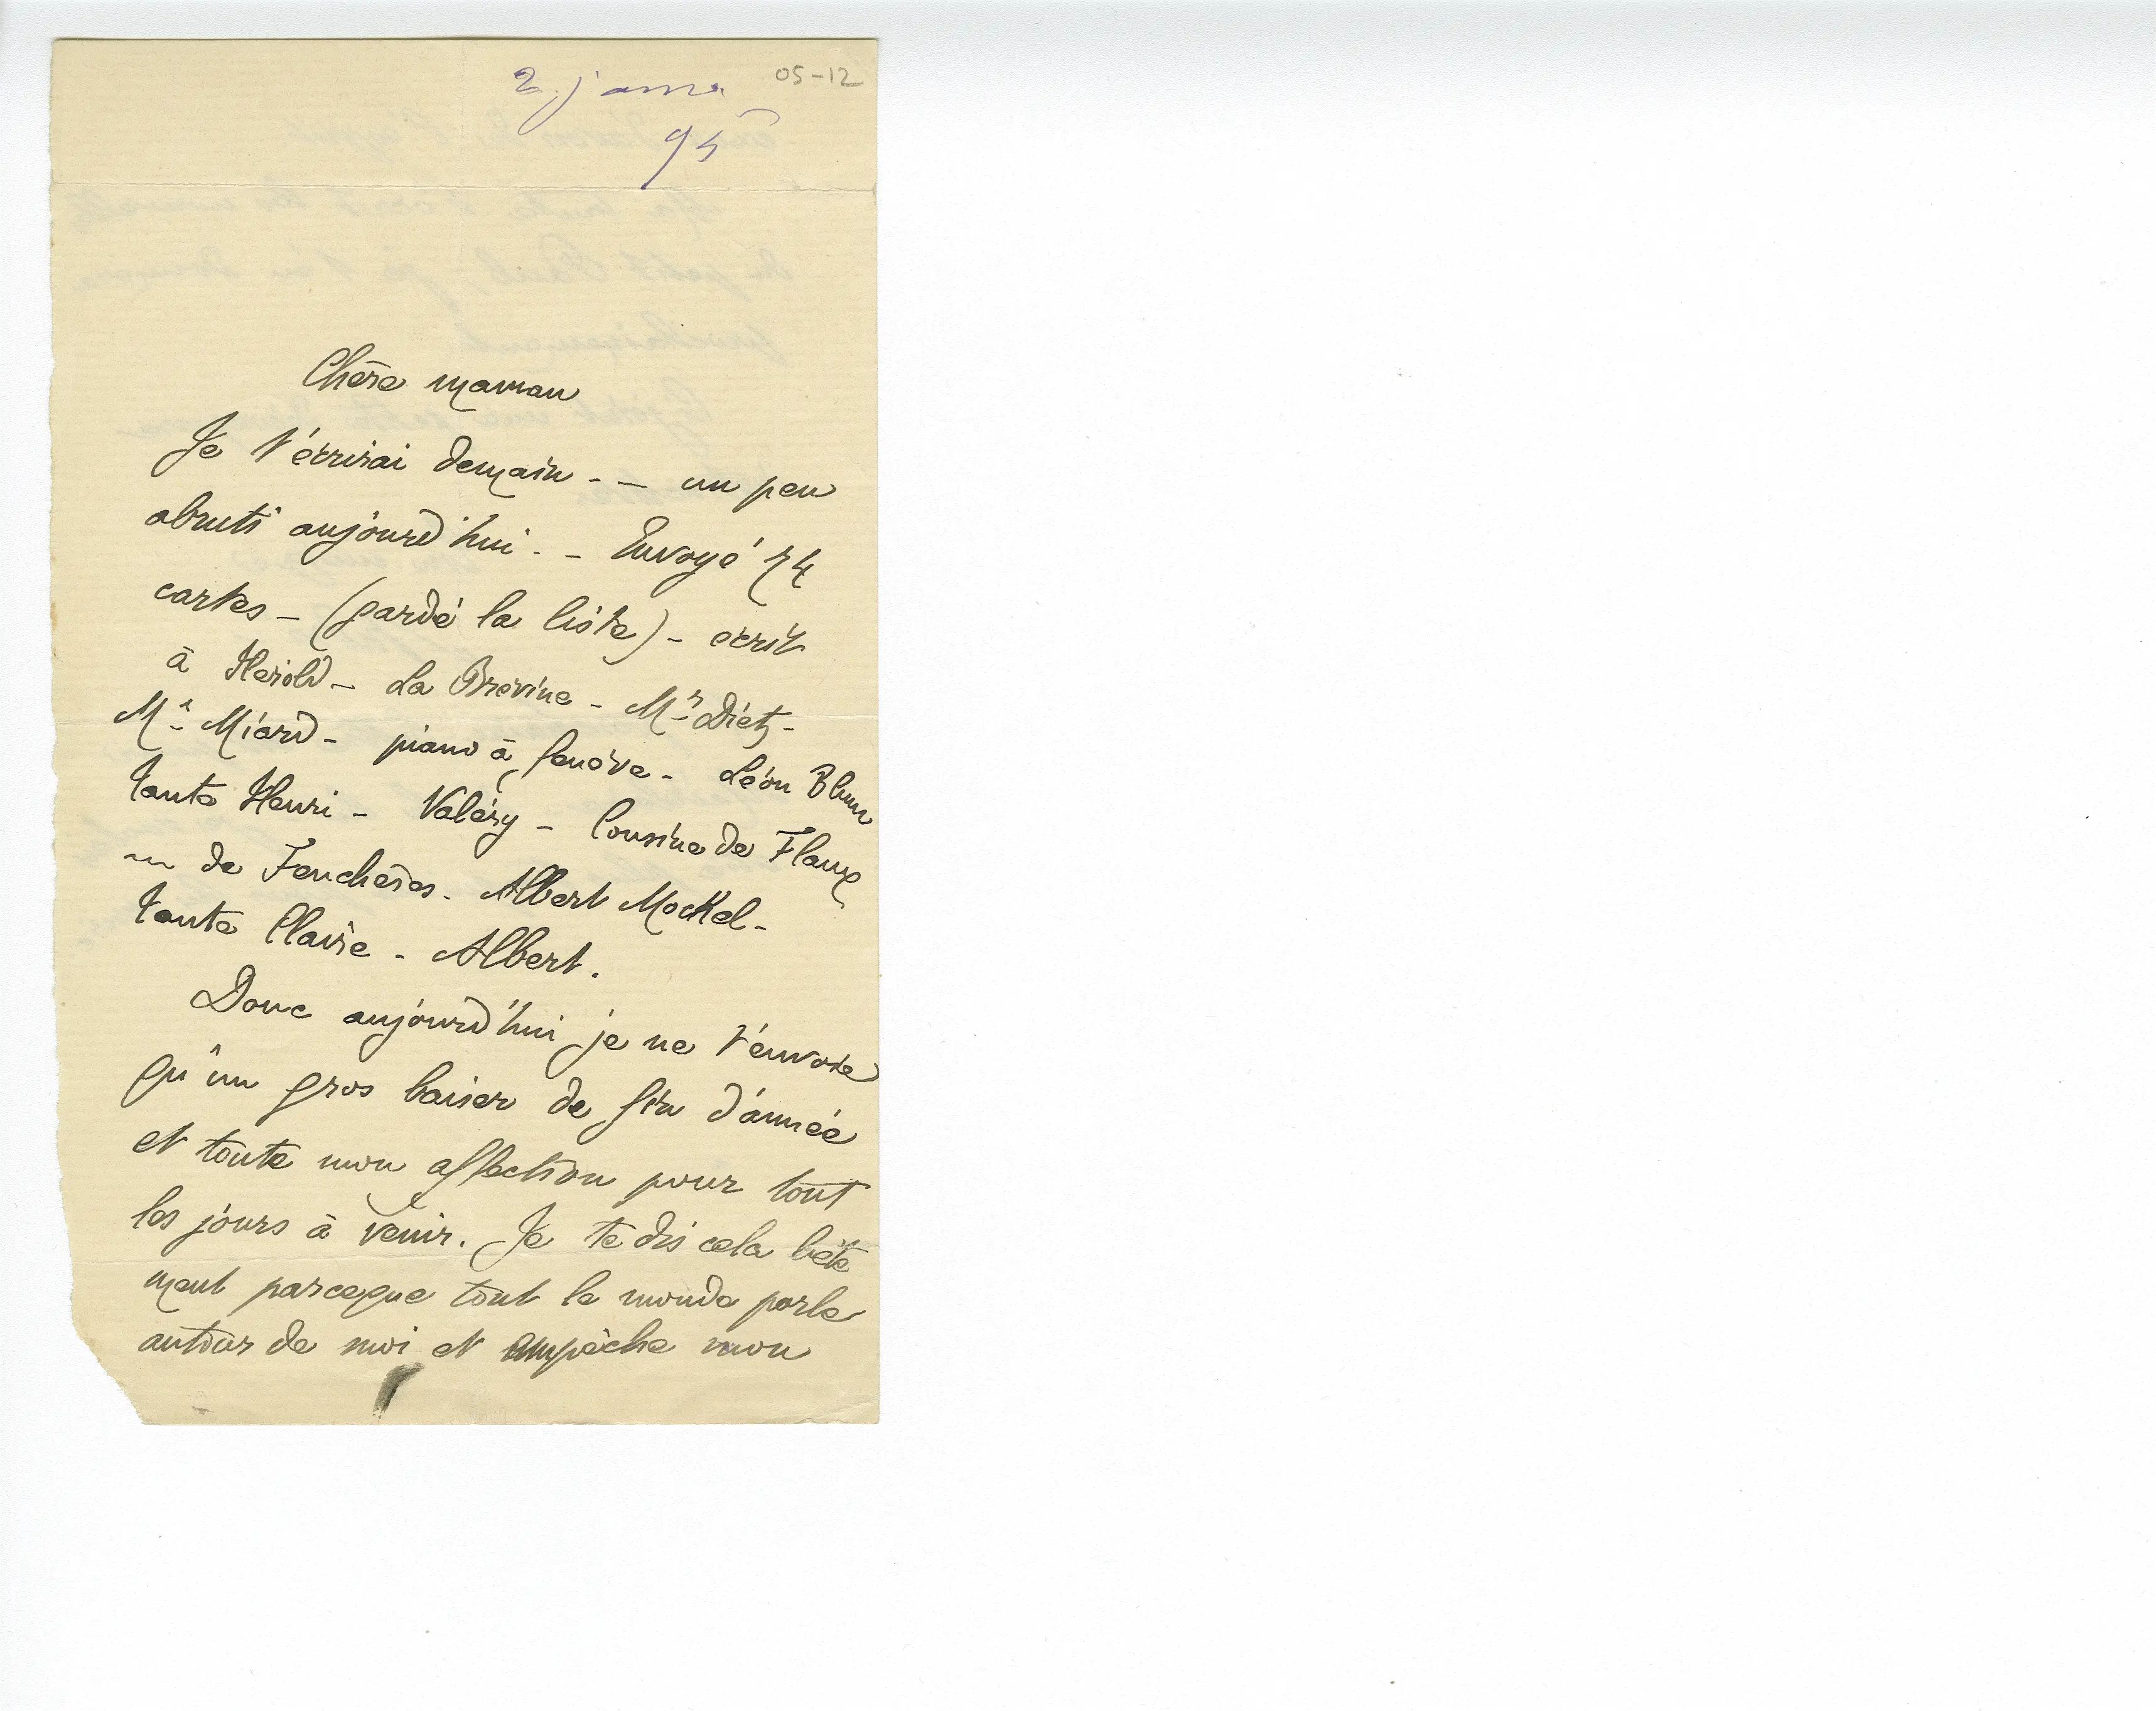 05-12
2 janv.
95
Chère maman
Je t'écrirai demain - - un peu
abruti aujourd'hui. - Envoyé 74
cartes - (gardé la liste) - écrit
à Hérold - La Brévine - Mr Dietz -
Mr Miard - piano à Genève - Léon Blum
tante Henri - Valéry - Cousine de Flaux
de Feuchères. Albert Mockel -
tante Claire - Albert.
Donc aujourd'hui je ne t'envoie
qu'un gros baiser de fin d'année
et toute mon affection pour tout
les jours à venir. Je te dis cela bête
ment parceque tout le monde parle
autour de moi et empêche mon